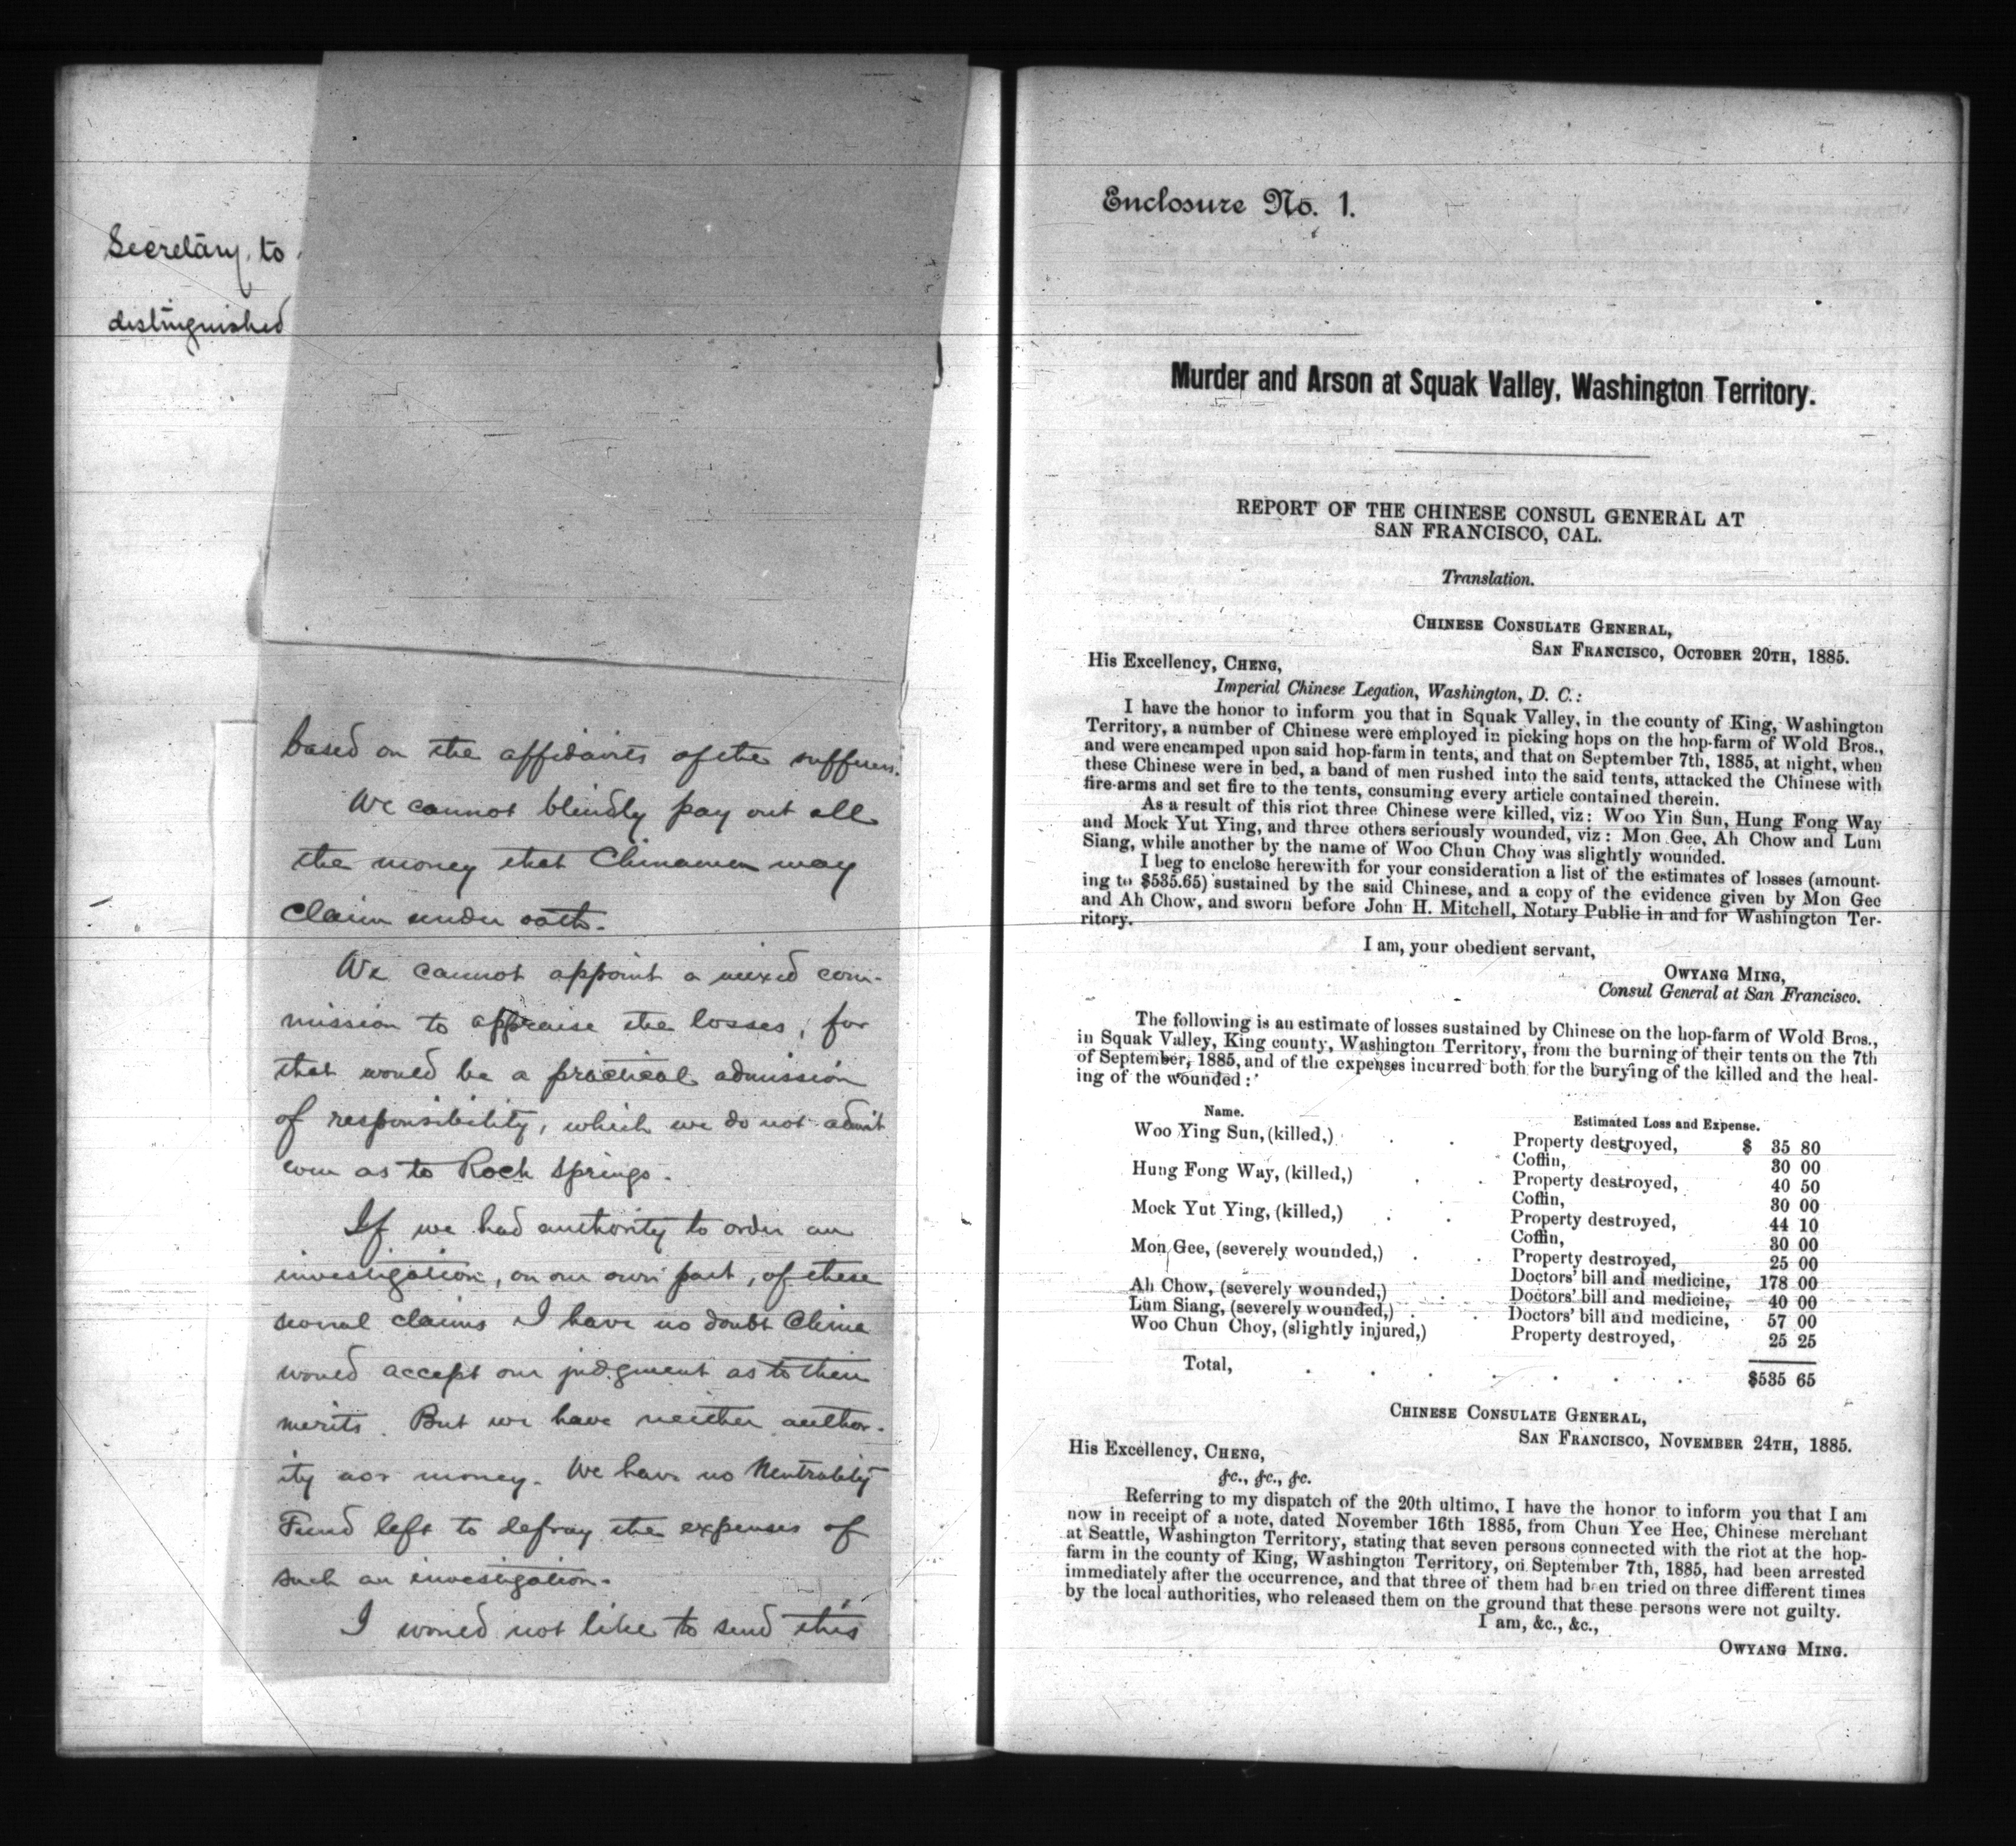 Secretary, to
distinguished
based on the affidavits of the sufferers.
We cannot blindly pay out all
the money that Chinamen may
claim under oath.
We cannot appoint a mixed com-
mission to appraise the losses, for
that would be a practical admission
of responsibility, which we do not admit
even as to Rock Springs.
If we had authority to order an
investigation, on our own part, of these
several claims I have no doubt China
would accept our judgment as to their
merits. But we have neither author-
ity nor money. We have no Neutrality
Fund left to defray the expenses of
such an investigation.
I would not like to send this
Enclosure No. 1.
Murder and Arson at Squak Valley, Washington Territory.
REPORT OF THE CHINESE CONSUL GENERAL AT
SAN FRANCISCO, CAL.
Translation.
CHINESE CONSULATE GENERAL,
SAN FRANCISCO, OCTOBER 20TH, 1885.
His Excellency, CHENG,
Imperial Chinese Legation, Washington, D. C.:
I have the honor to inform you that in Squak Valley, in the county of King, Washington
Territory, a number of Chinese were employed in picking hops on the hop-farm of Wold Bros.,
and were encamped upon said hop-farm in tents, and that on September 7th, 1885, at night, when
these Chinese were in bed, a band of men rushed into the said tents, attacked the Chinese with
fire-arms and set fire to the tents, consuming every article contained therein.
As a result of this riot three Chinese were killed, viz: Woo Yin Sun, Hung Fong Way
and Mock Yut Ying, and three others seriously wounded, viz: Mon Gee, Ah Chow and Lum
Siang, while another by the name of Woo Chun Choy was slightly wounded.
I beg to enclose herewith for your consideration a list of the estimates of losses (amount-
ing to $535.65) sustained by the said Chinese, and a copy of the evidence given by Mon Gee
and Ah Chow, and sworn before John H. Mitchell, Notary Public in and for Washington Ter-
ritory.
I am, your obedient servant,
OWYANG MING,
Consul General at San Francisco.
The following is an estimate of losses sustained by Chinese on the hop-farm of Wold Bros.,
in Squak Valley, King county, Washington Territory, from the burning of their tents on the 7th
of September, 1885, and of the expenses incurred both for the burying of the killed and the heal-
ing of the wounded:
Name. Estimated Loss and Expense.
Woo Ying Sun, (killed,) . . Property destroyed, $ 35 80
Coffin, 30 00
Hung Fong Way, (killed,) . . Property destroyed, 40 50
Coffin, 30 00
Mock Yut Ying, (killed,) . . Property destroyed, 44 10
Coffin, 30 00
Mon Gee, (severely wounded,) . . Property destroyed, 25 00
Doctors' bill and medicine, 178 00
Ah Chow, (severely wounded,) . Doctors' bill and medicine, 40 00
Lum Siang, (severely wounded,) . . Doctors' bill and medicine, 57 00
Woo Chun Choy, (slightly injured,) Property destroyed, 25 25
Total, . . . . . . . $535 65
CHINESE CONSULATE GENERAL,
SAN FRANCISCO, NOVEMBER 24TH, 1885.
His Excellency, CHENG,
&c., &c., &c.
Referring to my dispatch of the 20th ultimo, I have the honor to inform you that I am
now in receipt of a note, dated November 16th 1885, from Chun Yee Hee, Chinese merchant
at Seattle, Washington Territory, stating that seven persons connected with the riot at the hop-
farm in the county of King, Washington Territory, on September 7th, 1885, had been arrested
immediately after the occurrence, and that three of them had been tried on three different times
by the local authorities, who released them on the ground that these persons were not guilty.
I am, &c., &c.,
OWYANG MING.